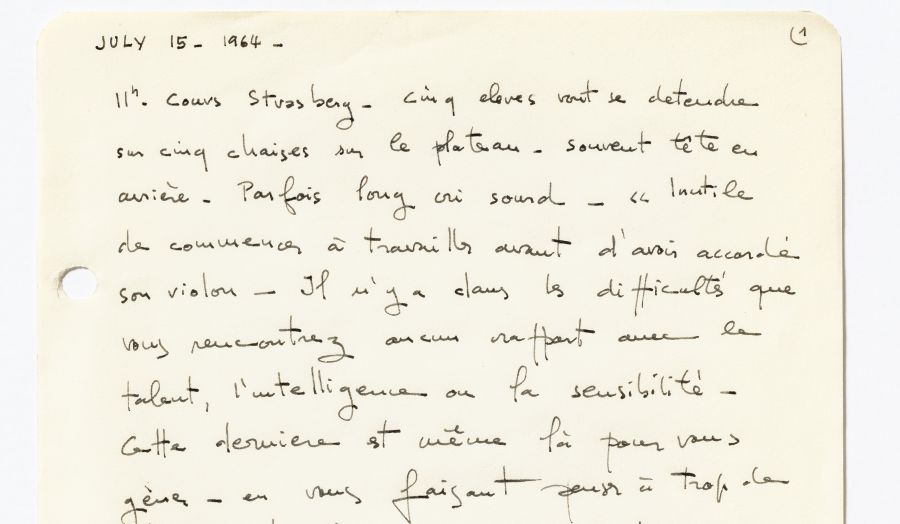 JULY 15 - 1964 -
(1
11h. Cours Strasberg - Cinq eleves vont se detendre
sur cinq chaises sur le plateau - souvent tête en
arrière - Parfois long cri sourd - « Inutile
de commencer à travailler avant d'avoir accordé
son violon - Il n'y a dans les difficultés que
vous rencontrez aucun rapport avec le
talent, l'intelligence ou la sensibilité -
Cette derniere est même là pour vous
gêner - en vous faisant penser à trop de